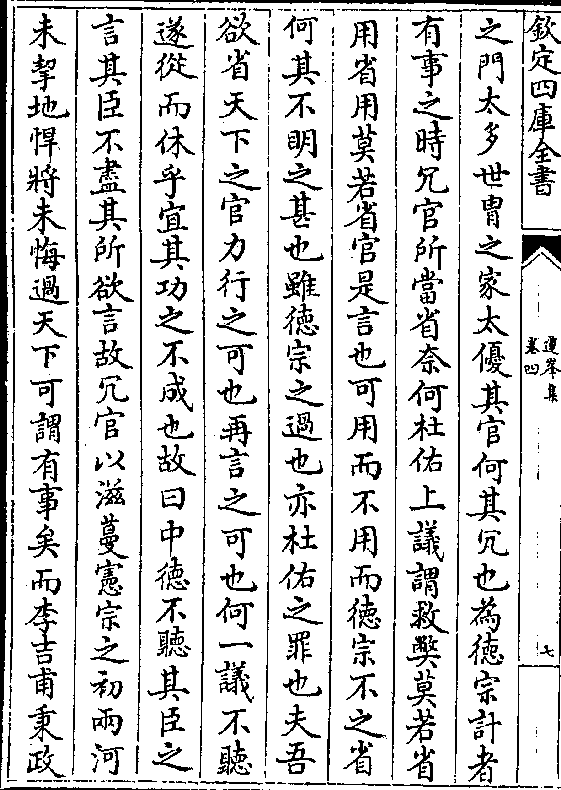 欽定四庫全書
蓮峯集
卷四
七
之門太多世胄之家太優其官何其冗也為德宗計者
有事之時冗官所當省奈何杜佑上議謂救弊莫若省
用省用莫若省官是言也可用而不用而德宗不之省
何其不明之甚也雖德宗之過也亦杜佑之罪也夫吾
欲省天下之官力行之可也再言之可也何一議不聽
遂從而休乎宜其功之不成也故曰中德不聽其臣之
言其臣不盡其所欲言故冗官以滋蔓憲宗之初兩河
未挈地悍將未悔過天下可謂有事矣而李吉甫秉政